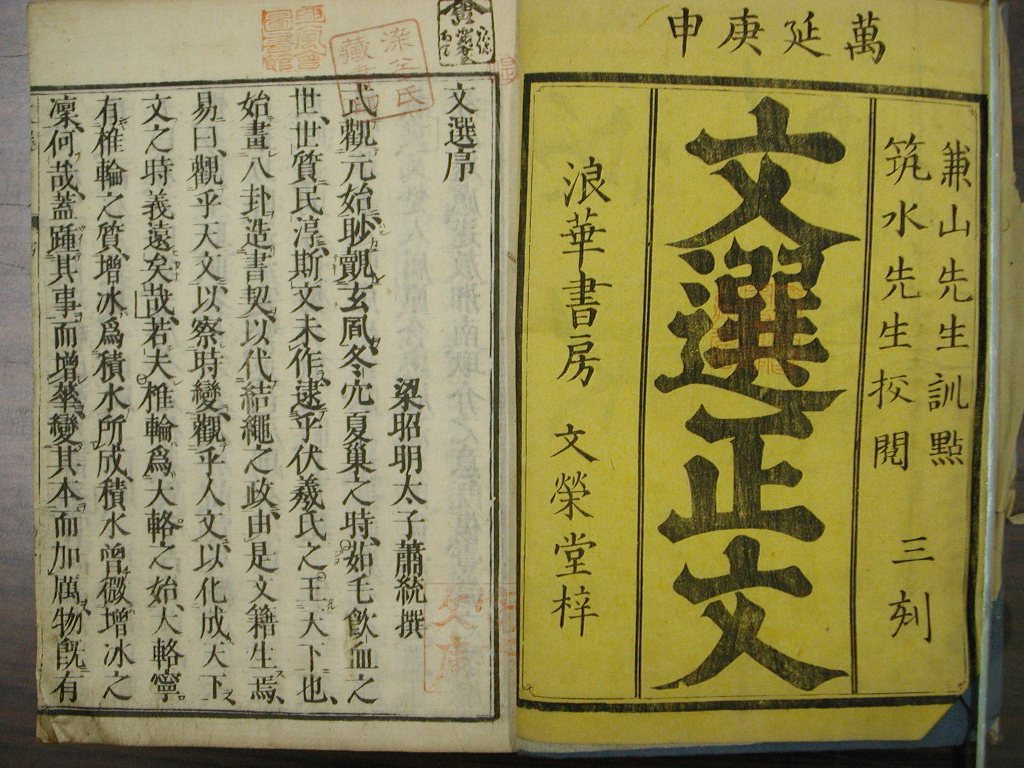 萬延庚申
兼山先生訓點
筑水先生校閱 三刻
文選正文
浪華書房 文榮堂梓
文選序
梁昭明太子蕭統撰
式觀元始眇覿玄風冬穴夏巢之時如毛飲血之
世世質民淳斯文未作逮乎伏羲氏之王天下也
始畫八卦造書契以代結繩之政由是文籍生焉
易曰觀乎天文以察時變觀乎人文以化成天下
文之時義遠矣哉若夫椎輪爲大輅之始大輅寧
有椎輪之質增冰爲積水所成積水曾微增冰之
凜何哉蓋踵其事而增華變其本而加厲物既有